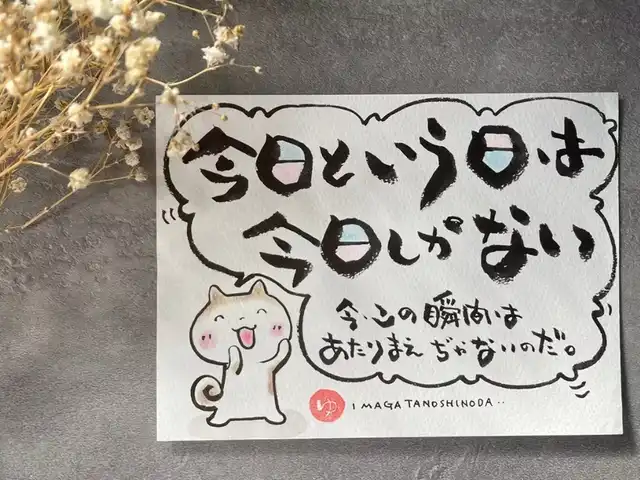 今日という日は
今日しかない
今、この瞬間は
あたりまえぢゃないのだ。
ゆ
IMAGA TANOSHINODA..